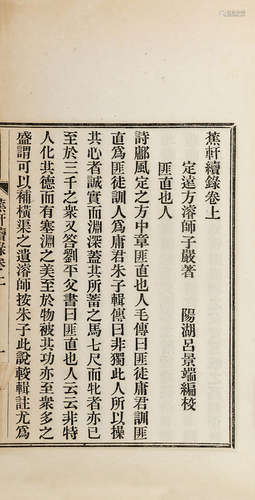 蕉軒續錄卷上
定遠方濬師子嚴著　陽湖呂景端編校
匪直也人
詩鄘風定之方中章匪直也人毛傳曰匪徒庸君訓匪
直爲匪徒訓人爲庸君朱子輯傳曰非獨此人所以操
其心者誠實而淵深蓋其所蓄之馬七尺而牝者亦已
至於三千之衆又答劉平父書曰匪直也人云云非特
人化其德而有塞淵之美至於物被其功亦至衆多之
盛謂可以補橫渠之遺濬師按朱子此說較輯註尤爲
蕉軒續錄卷上
一